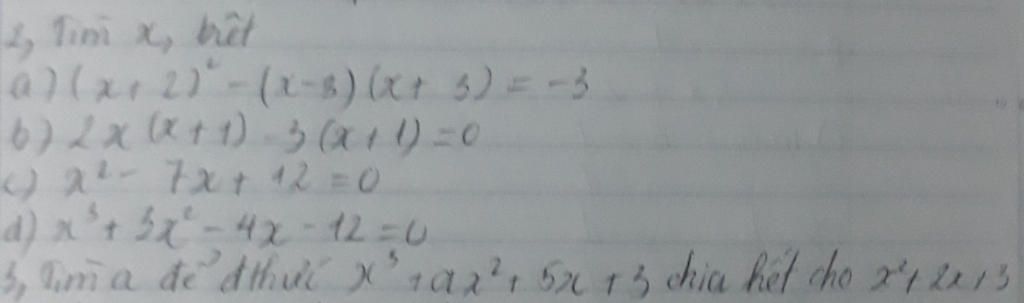 2, Tìm x, biết
a) (x+2)² - (x-3)(x+3) = -3
b) 2x(x+1) - 3(x+1) = 0
c) x² - 7x + 12 = 0
d) x³ + 3x² - 4x - 12 = 0
3, Tìm a để đthức x³ + ax² + 5x + 3 chia hết cho x² + 2x + 3